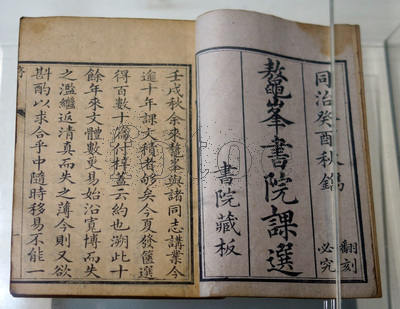 同治癸酉秋鐫
翻刻
必究
鼇峯書院課選
書院藏板
壬戌秋余來鼇峯與諸同志講業今
逾十年課文積者夥矣今夏發篋選
得百數十篇付梓蓋云約也溯此十
餘年來文體數更易始沿寬博而失
之濫繼返清真而失之薄今則又欲
斟酌以求合乎中隨時移易不能一